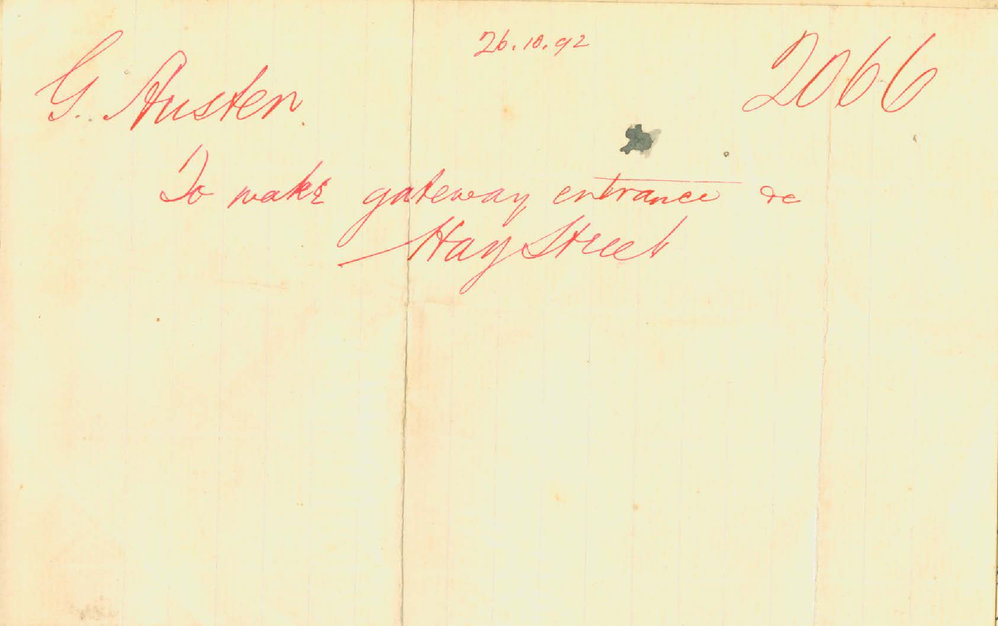 26.10.92
G. Austen.
2066
To make gateway entrance &c
Hay Street